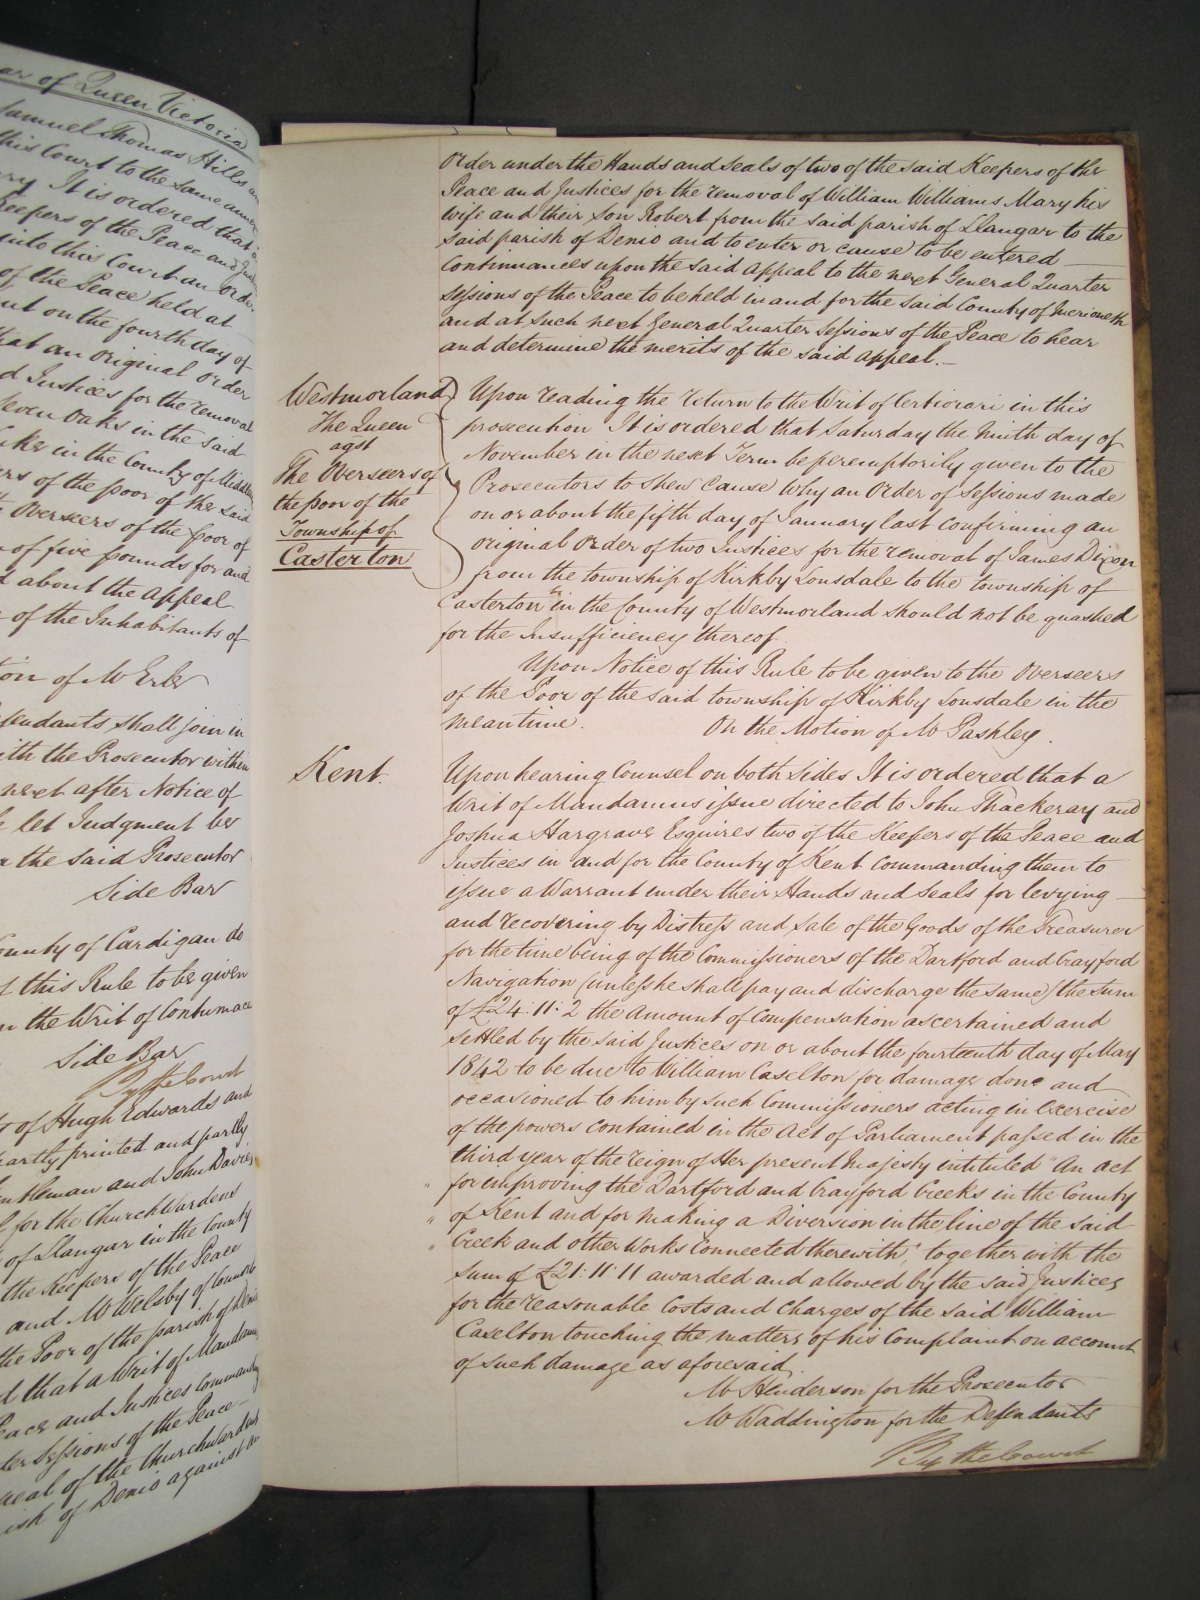 ar of Queen Victoria
Samuel Thomas Hills
this Court to the same
It is ordered that
Keepers of the Peace and
into this Court an Order
of the Peace held at
on the fourth day of
that an Original Order
d Justices for the removal
Seven Oaks in the said
in the County of
rs of the poor of the said
Overseers of the poor of
of five pounds for and
about the appeal
of the Inhabitants of
tion of Mr Erle
fendants shall join in
ith the Prosecutor within
next after Notice of
let Judgment be
the said Prosecutor
Side Bar
ounty of Cardigan do
f this Rule to be given
n the Writ of Contumace
Side Bar
By the Court
of Hugh Edwards and
partly printed and partly
ntleman and John Davies
for the Churchwardens
of Llangar in the County
the Keepers of the Peace
and Mr Welsby of Counsel
the Poor of the parish of Denio
d that a Writ of Mandamus
Peace and Justices Commanding
ter Sessions of the Peace
peal of the Churchwardens
ish of Denio against an
Order under the Hands and Seals of two of the said Keepers of the
Peace and Justices for the removal of William Williams Mary his
wife and their son Robert from the said parish of Llangar to the
said parish of Denio and to enter or cause to be entered
Continuances upon the said Appeal to the next General Quarter
Sessions of the Peace to be held in and for the said County of Merioneth
and at such next General Quarter Sessions of the Peace to hear
and determine the merits of the said appeal.
Westmorland
The Queen
agst
The Overseers of
the poor of the
Township of
Casterton
Upon reading the return to the Writ of Certiorari in this
prosecution It is ordered that Saturday the Ninth day of
November in the next Term be peremptorily given to the
Prosecutors to shew Cause Why an Order of Sessions made
on or about the fifth day of January last confirming an
original Order of two Justices for the removal of James Dixon
from the township of Kirkby Lonsdale to the township of
Casterton in the County of Westmorland should not be quashed
for the Insufficiency thereof.
Upon Notice of this Rule to be given to the Overseers
of the Poor of the said township of Kirkby Lonsdale in the
meantime. On the Motion of Mr Pashley.
Kent.
Upon hearing Counsel on both sides It is ordered that a
Writ of Mandamus issue directed to John Thackeray and
Joshua Hargrave Esquires two of the Keepers of the Peace and
Justices in and for the County of Kent commanding them to
issue a Warrant under their Hands and Seals for levying
and recovering by Distress and Sale of the Goods of the Treasurer
for the time being of the Commissioners of the Dartford and Crayford
Navigation (unless he shall pay and discharge the same) the Sum
of £24: 11: 2 the Amount of Compensation ascertained and
settled by the said Justices on or about the fourteenth day of May
1842 to be due to William Caselton for damage done and
occasioned to him by such Commissioners acting in Exercise
of the powers contained in the Act of Parliament passed in the
third year of the reign of Her present Majesty intituled "An act
" for improving the Dartford and Crayford Creeks in the County
" of Kent and for making a Diversion in the line of the said
" Creek and other Works Connected therewith", together with the
Sum of £21: 11: 11 awarded and allowed by the said Justices
for the reasonable Costs and Charges of the said William
Caselton touching the matters of his Complaint on account
of such damage as aforesaid.
Mr Henderson for the Prosecutor
Mr Waddington for the Defendants
By the Court